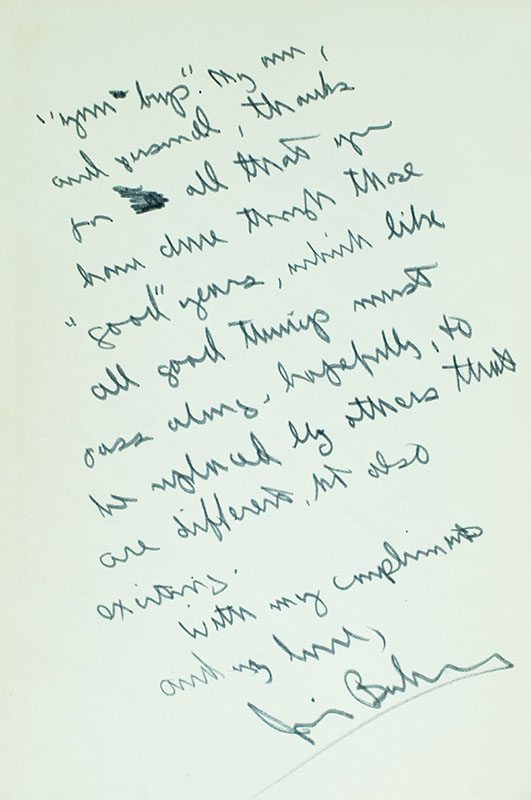 "your boys". My own,
and personal, thanks
for all that you
have done through those
"good" years, which like
all good things must
pass along, hopefully, to
be replaced by others that
are different, but also
exciting.
With my compliments
and my love,